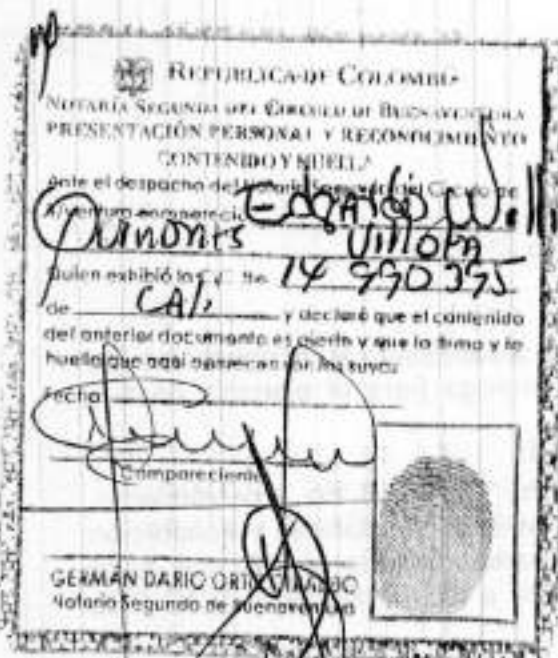 REPUBLICA DE COLOMBIA
NOTARÍA SEGUNDA DEL CIRCULO DE BUENAVENTURA
PRESENTACIÓN PERSONAL Y RECONOCIMIENTO
CONTENIDO Y HUELLA
Ante el despacho del Notario Segundo del Círculo de
B/ventura compareció Edgardo Will
Quinones Villota
Quien exhibió la C.C. No. 14 990 395
de CALI y declaró que el contenido
del anterior documento es cierto y que la firma y la
huella que aquí aparecen son las suyas
Fecha
Compareciente
GERMAN DARIO ORTIZ GIRALDO
Notario Segundo de Buenaventura